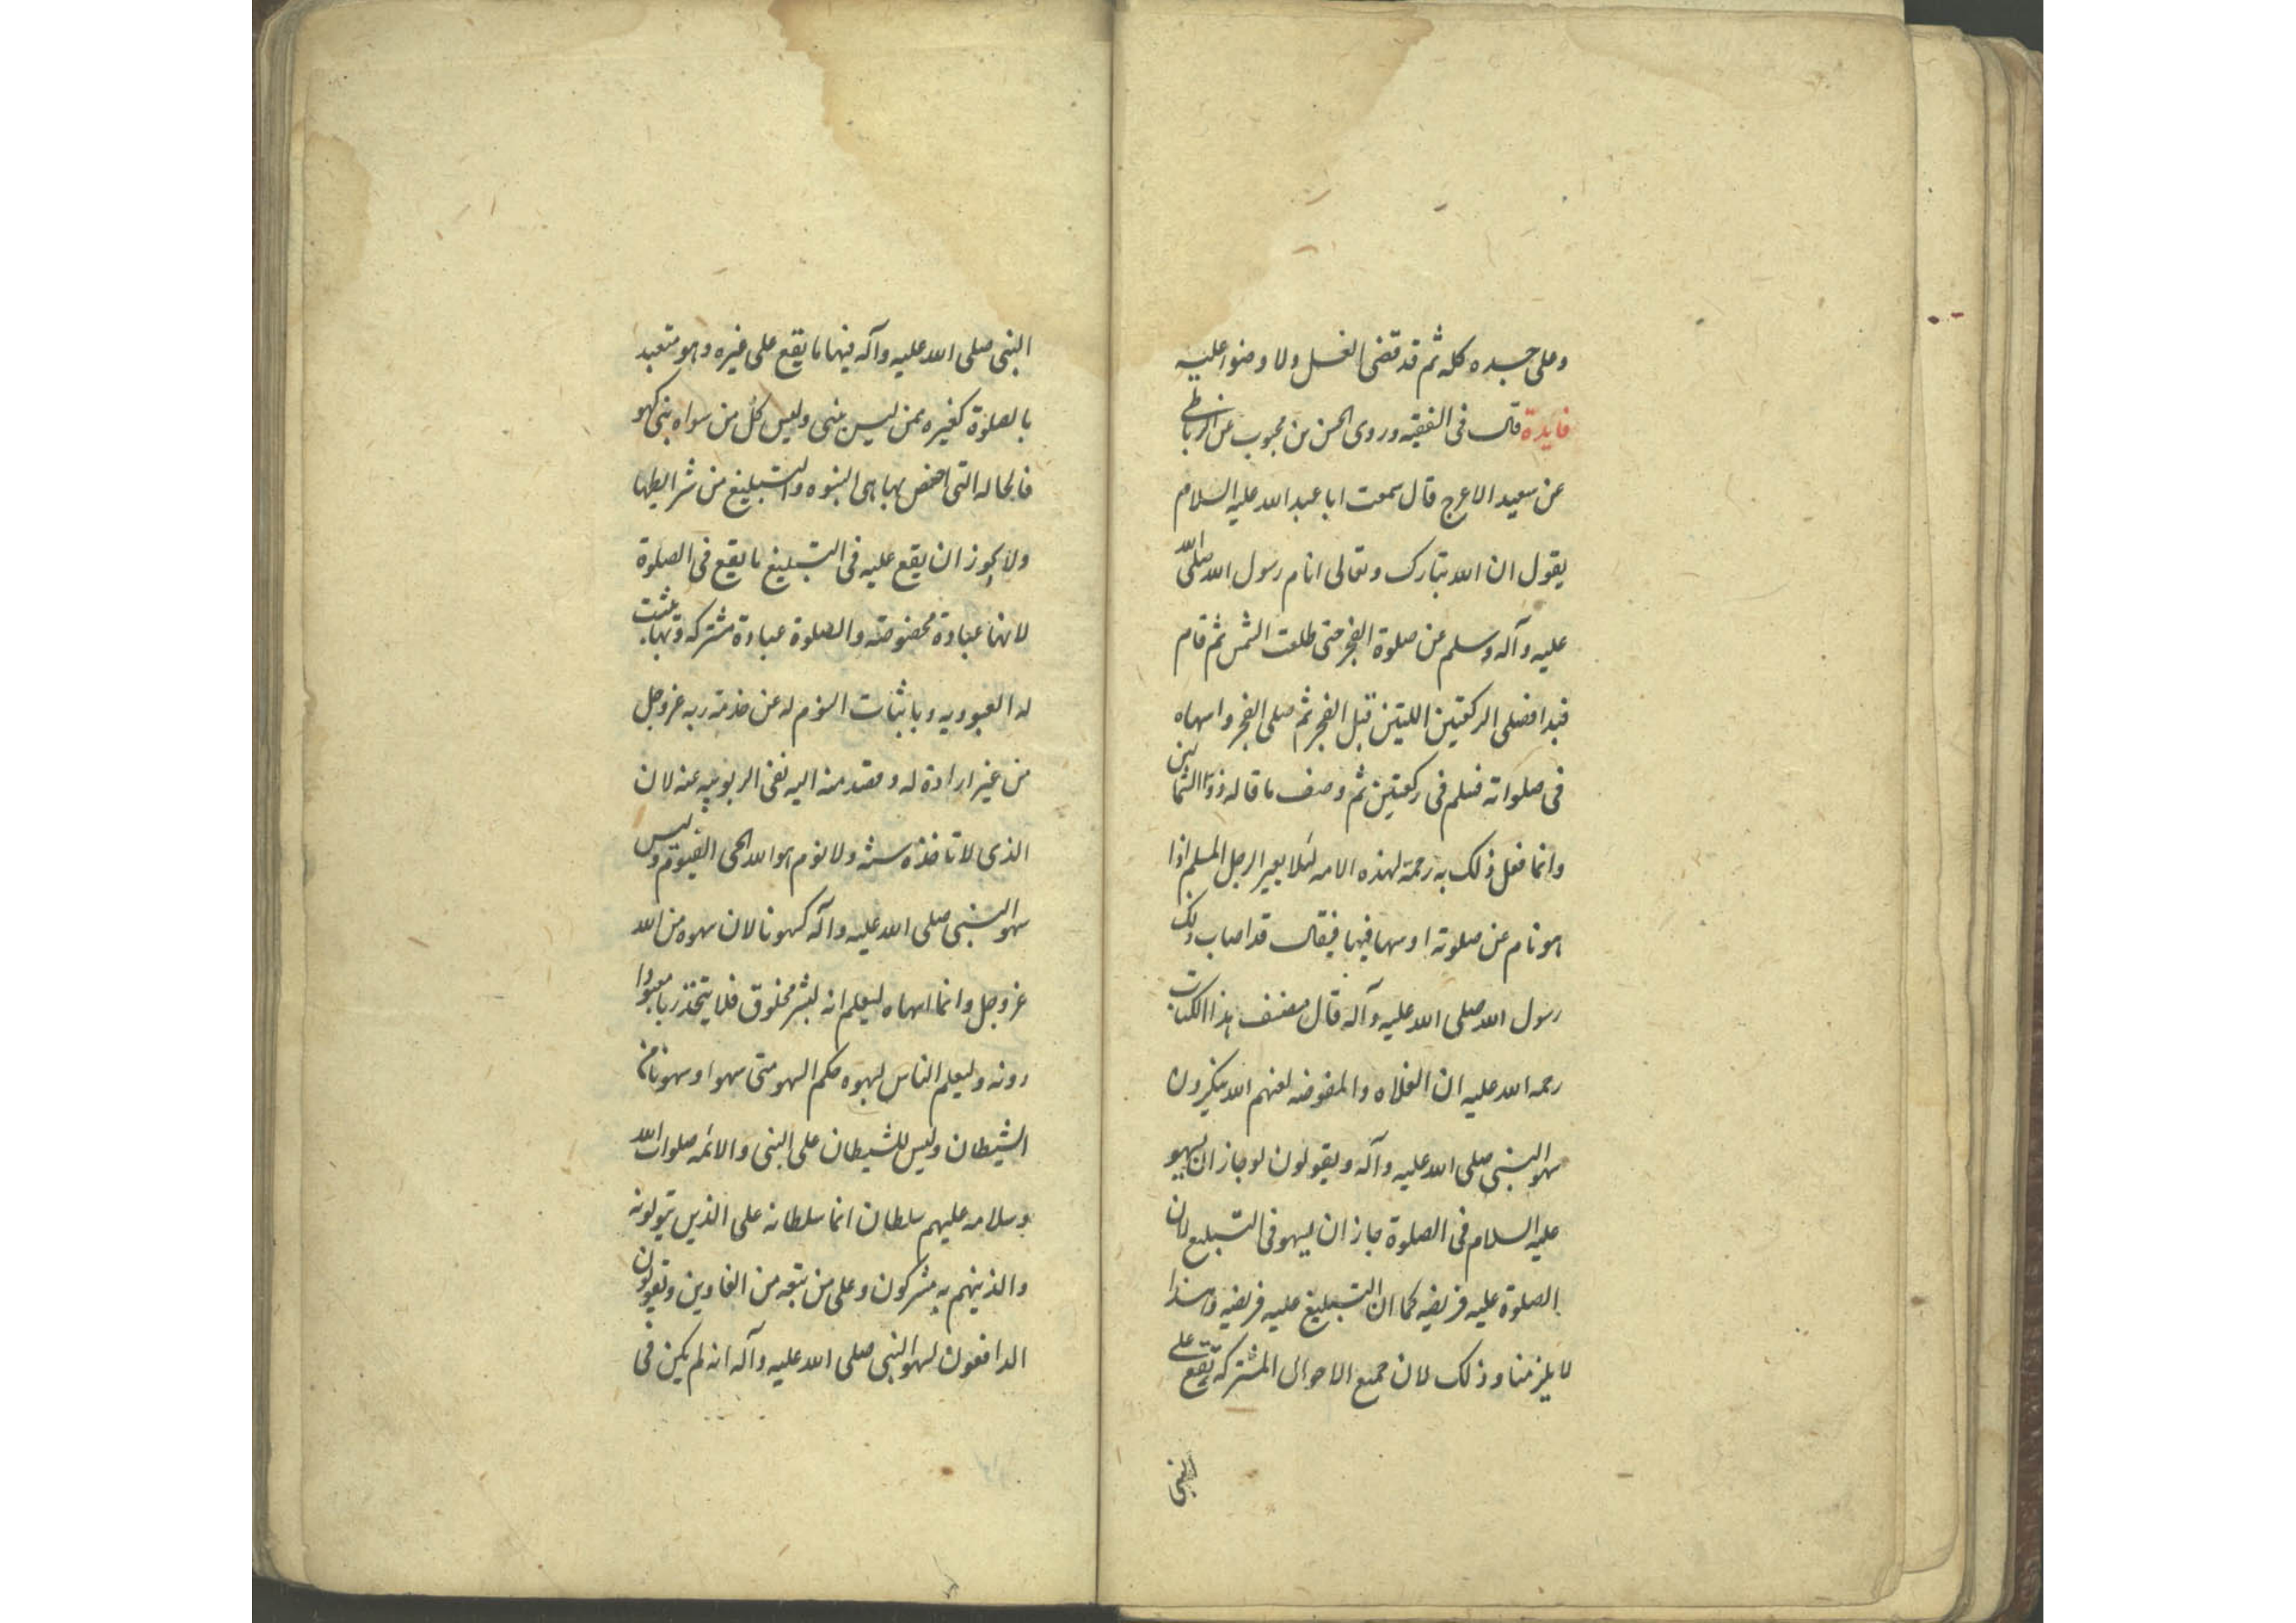 وعلى جسده كله ثم قد قضى الغسل ولا وضوء عليه
فايدة قال فى الفقيه وروى الحسن بن محبوب عن الرباطى
عن سعيد الاعرج قال سمعت ابا عبد الله عليه السلام
يقول ان الله تبارك وتعالى انام رسول الله صلى الله
عليه وآله وسلم عن صلوة الفجر حتى طلعت الشمس ثم قام
فبدا فصلى الركعتين اللتين قبل الفجر ثم صلى الفجر واسهاه
فى صلواته فسلم فى ركعتين ثم وصف ما قاله ذو الشمالين
وانما فعل ذلك به رحمة لهذه الامه لئلا يعير الرجل المسلم اذا
هو نام عن صلوته او سها فيها فيقال قد اصاب ذلك
رسول الله صلى الله عليه وآله قال مصنف هذا الكتاب
رحمه الله عليه ان الغلاه والمفوضه لعنهم الله ينكرون
سهو النبى صلى الله عليه وآله ويقولون لو جاز ان يسهو
عليه السلام فى الصلوة جاز ان يسهو فى التبليغ لان
الصلوة عليه فريضه كما ان التبليغ عليه فريضه وهذا
لا يلزمنا وذلك لان جميع الاحوال المشتركة تقع على
النبى
النبى صلى الله عليه وآله فيها ما يقع على غيره وهو متعبد
بالصلوة كغيره ممن ليس بنبى وليس كل من سواه بنبى كهو
فالحاله التى اختص بها هى النبوه والتبليغ من شرايطها
ولا يجوز ان يقع عليه فى التبليغ ما يقع فى الصلوة
لانها عبادة مخصوصة والصلوة عبادة مشتركه وبها يثبت
له العبوديه وباثبات النوم له عن خدمة ربه عز وجل
من غير ارادة له وقصد منه اليه نفى الربوبيه عنه لان
الذى لا تاخذه سنة ولا نوم هو الله الحى القيوم وليس
سهو النبى صلى الله عليه وآله كسهونا لان سهوه من الله
عز وجل وانما اسهاه ليعلم انه بشر مخلوق فلا يتخذ ربا معبودا
دونه وليعلم الناس بسهوه حكم السهو متى سهوا وسهونا من
الشيطان وليس للشيطان على النبى والائمه صلوات الله
وسلامه عليهم سلطان انما سلطانه على الذين يتولونه
والذينهم به مشركون وعلى من تبعه من الغاوين ويقولون
الدافعون لسهو النبى صلى الله عليه وآله انه لم يكن فى